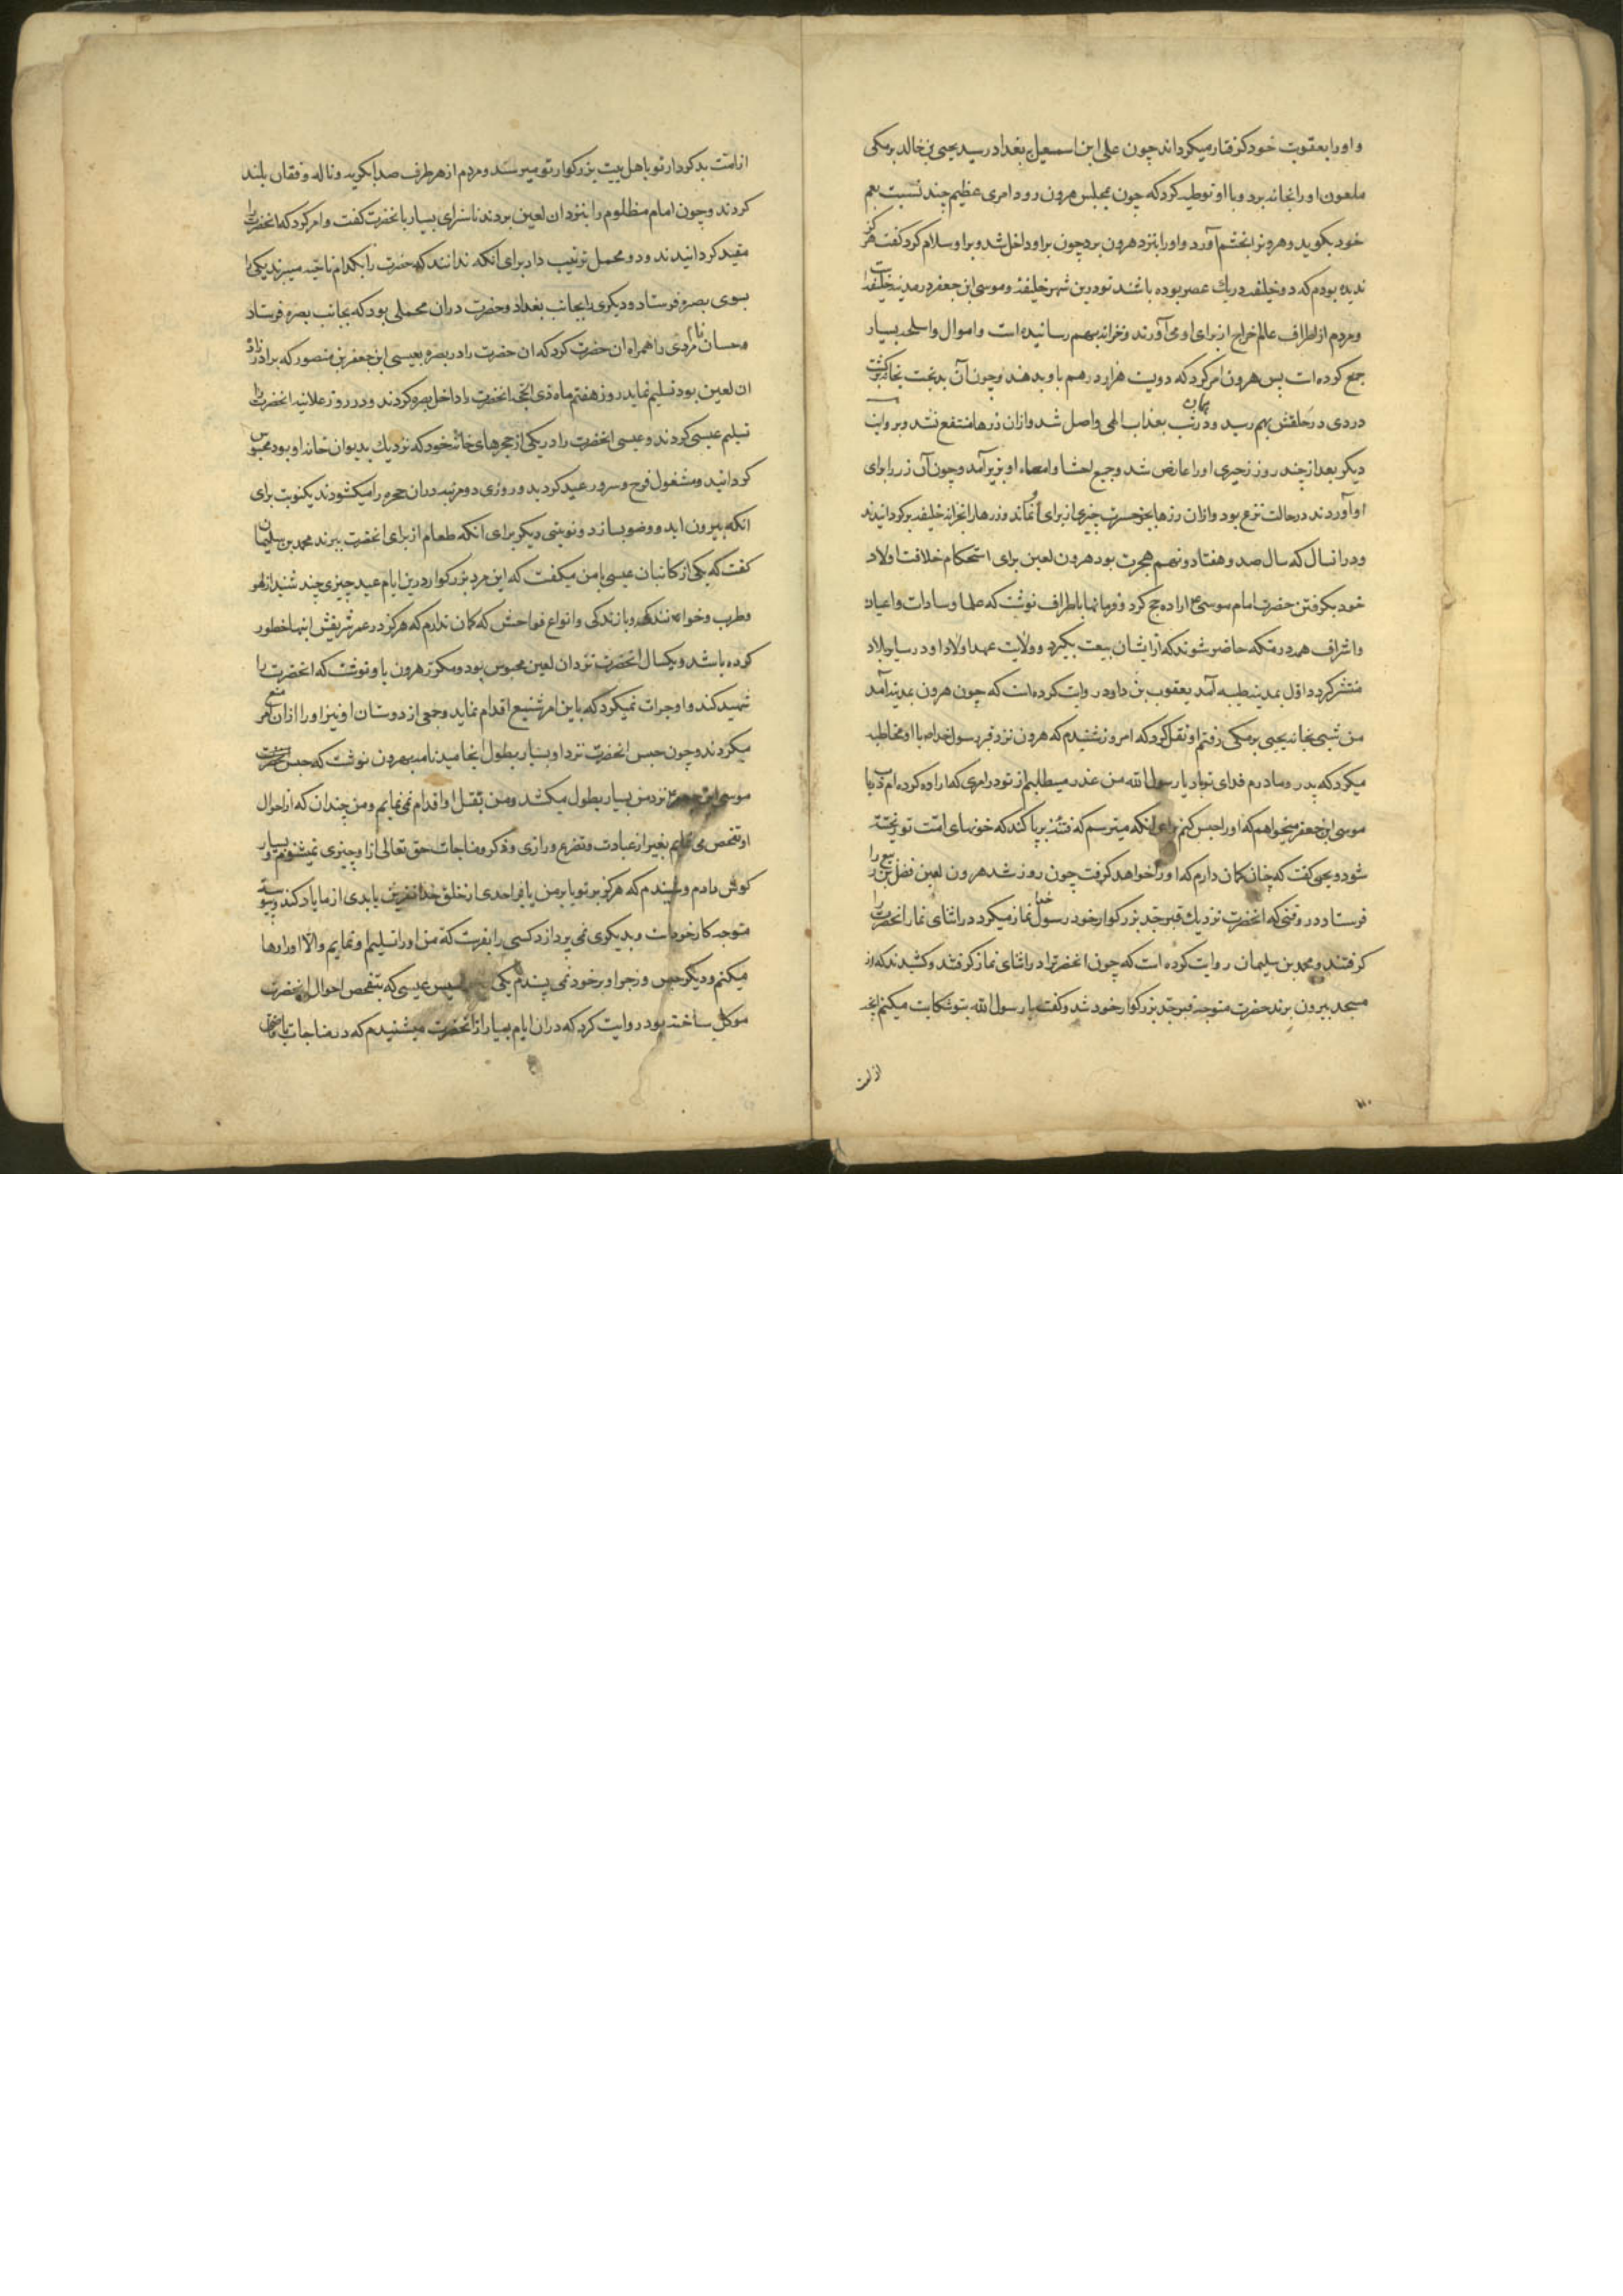 و او را بعقوبت خود کرفتار میکرداند چون علی ابن اسمعیل ببغداد رسید یحیی بن خالد برمکی
ملعون او را بخانه برد و با او توطیه کرد که چون بمجلس هرون رود امری عظیم چند نسبت بعم
خود بکوید و هرونرا بخشم آورد و او را بنزد هرون برد چون براو داخل شد و براو سلام کرد کفت هرکز
ندیده بودم که دو خلیفه در یک عصر بوده باشند تو درین شهر خلیفه و موسی ابن جعفر در مدینه خلیفه است
و مردم از اطراف عالم خراج از برای او می آورند و خزانه بهم رسانیده است و اموال و اسلحه بسیار
جمع کرده است پس هرون امر کرد که دویست هزار درهم باو بدهند و چون آن بدبخت بخانه برکشت
دردی در حلقش بهم رسید و در همان شب بعذاب الهی واصل شد و ازان زرها منتفع نشد و بروایت
دیکر بعد از چند روز زحیری او را عارض شد و جمیع احشا و امعاء او بزیر آمد و چون آن زر را برای
او آوردند در حالت نزع بود و ازان زرها بجز حسرت چیزی از برای او نماند و زرها را بخزانه خلیفه برکردانیدند
و در انسال که سال صد و هفتاد و نهم هجرت بود هرون لعین برای استحکام خلافت اولاد
خود بکرفتن حضرت امام موسی ع اراده حج کرد و فرمانها باطراف نوشت که علما و سادات و اعیان
و اشراف همه در مکه حاضر شوند که از ایشان بیعت بکیرد و ولایت عهد اولاد او در سایر بلاد
منتشر کردد اول بمدینه طیبه آمد یعقوب بن داود روایت کرده است که چون هرون بمدینه آمد
من شبی بخانه یحیی برمکی رفتم او نقل کرد که امروز شنیدم که هرون نزد قبر رسول خدا ص با او مخاطبه
میکرد که پدر و مادرم فدای تو باد یا رسول الله من عذر میطلبم از تو در امری که اراده کرده ام در باب
موسی ابن جعفر میخواهم که او را حبس کنم برای انکه میترسم که فتنه برپا کند که خونهای امت تو ریخته
شود و یحیی کفت که چنان کمان دارم که او را خواهد کرفت چون روز شد هرون لعین فضل بن ربیع را
فرستاد در وقتی که انحضرت نزدیک قبر جد بزرکوار خود رسول خدا نماز میکرد در اثنای نماز انحضرت را
کرفتند و محمد بن سلیمان روایت کرده است که چون انحضرترا در اثنای نماز کرفتند و کشیدند که از
مسجد بیرون برند حضرت متوجه قبر جد بزرکوار خود شد و کفت یا رسول الله بتو شکایت میکنم انچه
از امت
از امت بدکردار تو باهل بیت بزرکوار تو میرسند و مردم از هر طرف صدا بکریه و ناله و فغان بلند
کردند و چون امام مظلوم را بنزد ان لعین بردند ناسزای بسیار بانحضرت کفت و امر کرد که انحضرت را
مقید کردانیدند و دو محمل ترتیب داد برای آنکه ندانند که حضرت را بکدام ناحیه میبرند یکی را
بسوی بصره فرستاد و دیکری را بجانب بغداد و حضرت دران محملی بود که بجانب بصره فرستاد
و حسان نام مردی را همراه ان حضرت کرد که ان حضرت را در بصره بعیسی ابن جعفر بن منصور که برادرزاده
ان لعین بود تسلیم نماید روز هفتم ماه ذی الحجه انحضرت را داخل بصره کردند و در روز علانیه انحضرت را
تسلیم عیسی کردند و عیسی انحضرت را در یکی از حجرهای خانه خود که نزدیک بدیوان خانه او بود محبوس
کردانید و مشغول فرح و سرور عید کردید و روزی دو مرتبه در ان حجره را میکشودند یکنوبت برای
انکه بیرون اید و وضو بسازد و نوبتی دیکر برای انکه طعام از برای انحضرت ببرند محمد بن سلیمان
کفت که یکی از کاتبان عیسی با من میکفت که این مرد بزرکوار درین ایام عید چیزی چند شنید از لهو
و طرب و خوانندکی و بازندکی و انواع فواحش که کمان ندارم که هرکز در عمر شریفش اینها خطور
کرده باشد و یکسال انحضرت نزد ان لعین محبوس بود و مکرر هرون باو نوشت که انحضرت را
شهید کند و او جرات نمیکرد که باین امر شنیع اقدام نماید و جمعی از دوستان او نیز او را ازان امر منع
میکردند و چون حبس انحضرت نزد او بسیار بطول انجامید نامه بهرون نوشت که حبس حضرت
موسی ابن جعفر نزد من بسیار بطول میکشد و من بقتل او اقدام نمی نمایم و من چندان که از احوال
او تفحص می نمایم بغیر از عبادت و تضرع و زاری و ذکر و مناجات حق تعالی از او چیزی نمیشنوم و بسیار
کوش دادم و نشنیدم که هرکز بر تو یا بر من یا بر احدی از خلق خدا نفرین یا بدی از ما یاد کند و پیوسته
متوجه کار خود است و بدیکری نمی پردازد کسی را بفرست که من او را تسلیم او نمایم و الا او را رها
میکنم و دیکر حبس و زجر او بر خود نمی پسندم یکی جاسیس عیسی که بتفحص احوال انحضرت
موکل ساخته بود روایت کرد که در ان ایام بسیار از انحضرت میشنیدم که در مناجات با